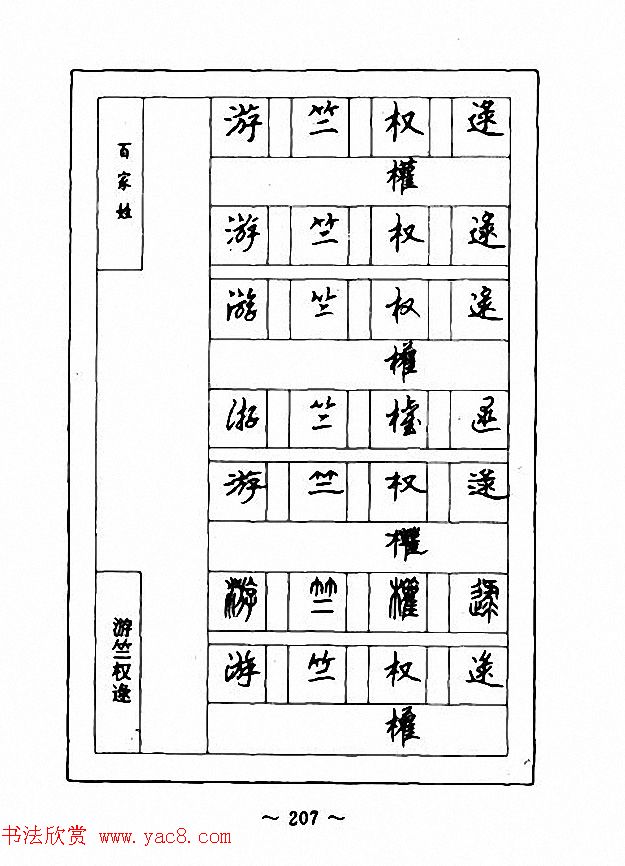 百家姓
游 竺 权 逯
權
游 竺 权 逯
游 竺 权 逯
權
游 竺 權 逯
游 竺 权 逯
權
游 竺 權 逯
游 竺 权 逯
權
游竺权逯
~ 207 ~
书法欣赏 www.yac8.com